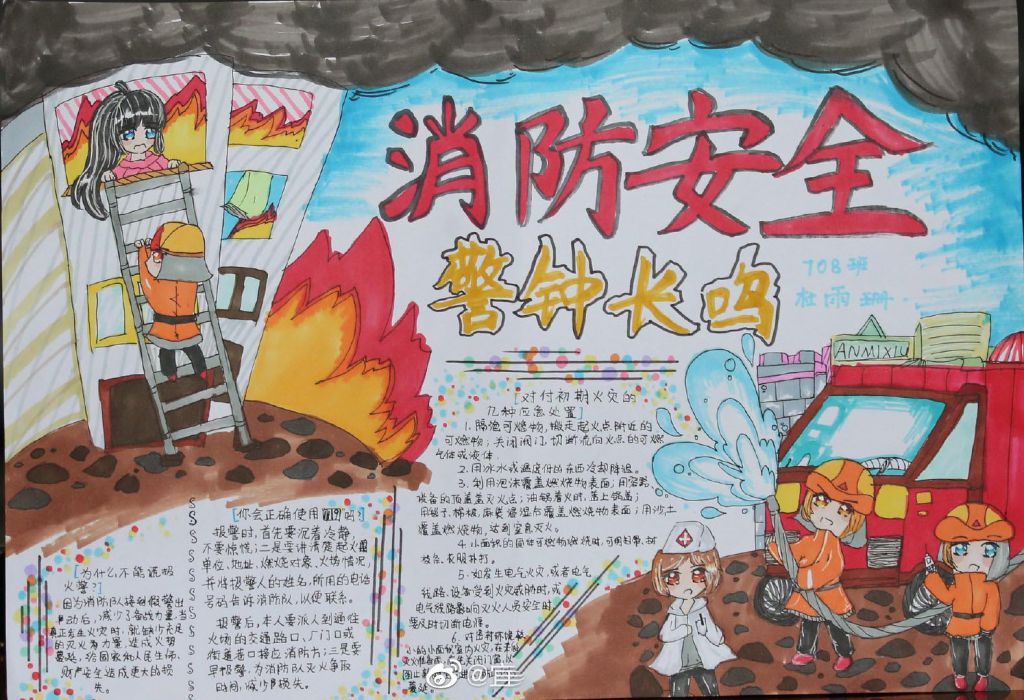 消防安全
警钟长鸣
708班
杜雨珊
ANMIXIU
[对付初期火灾的
几种应急处置]
1.隔绝可燃物,搬走起火点附近的
可燃物;关闭阀门,切断流向火点的可燃
气体或液体.
2.用冰水或温度低的东西冷却降温。
3.利用泡沫覆盖燃烧物表面;用容器
设备的顶盖盖灭火点;油锅着火时,盖上锅盖;
用毯子、棉被、麻袋浸湿后覆盖燃烧物表面;用沙土
覆盖燃烧物,达到窒息灭火。
4.小面积的固体可燃物燃烧时,可用扫帚、树
枝条、衣服扑打。
5.如发生电气火灾,或者电气
线路、设备受到火灾威胁时,或
电气线路影响灭火人员安全时,
要及时切断电源。
[你会正确使用119吗?]
报警时,首先要沉着冷静,
不要惊慌;二是要讲清楚起火
单位、地址、燃烧对象、火场情况,
并将报警人的姓名,所用的电话
号码告诉消防队,以便联系。
报警后,本人要派人到通往
火场的交通路口、厂门口或
街道巷口接应消防车;三是要
早报警,为消防队灭火争取
时间,减少损失。
[为什么不能谎报
火警?]
因为消防队接到假警出
动后,减少了备战力量,当
真正发生火灾时,就缺少充足
的灭火力量,造成火势
蔓延,给国家和人民生命、
财产安全造成更大的损
失。